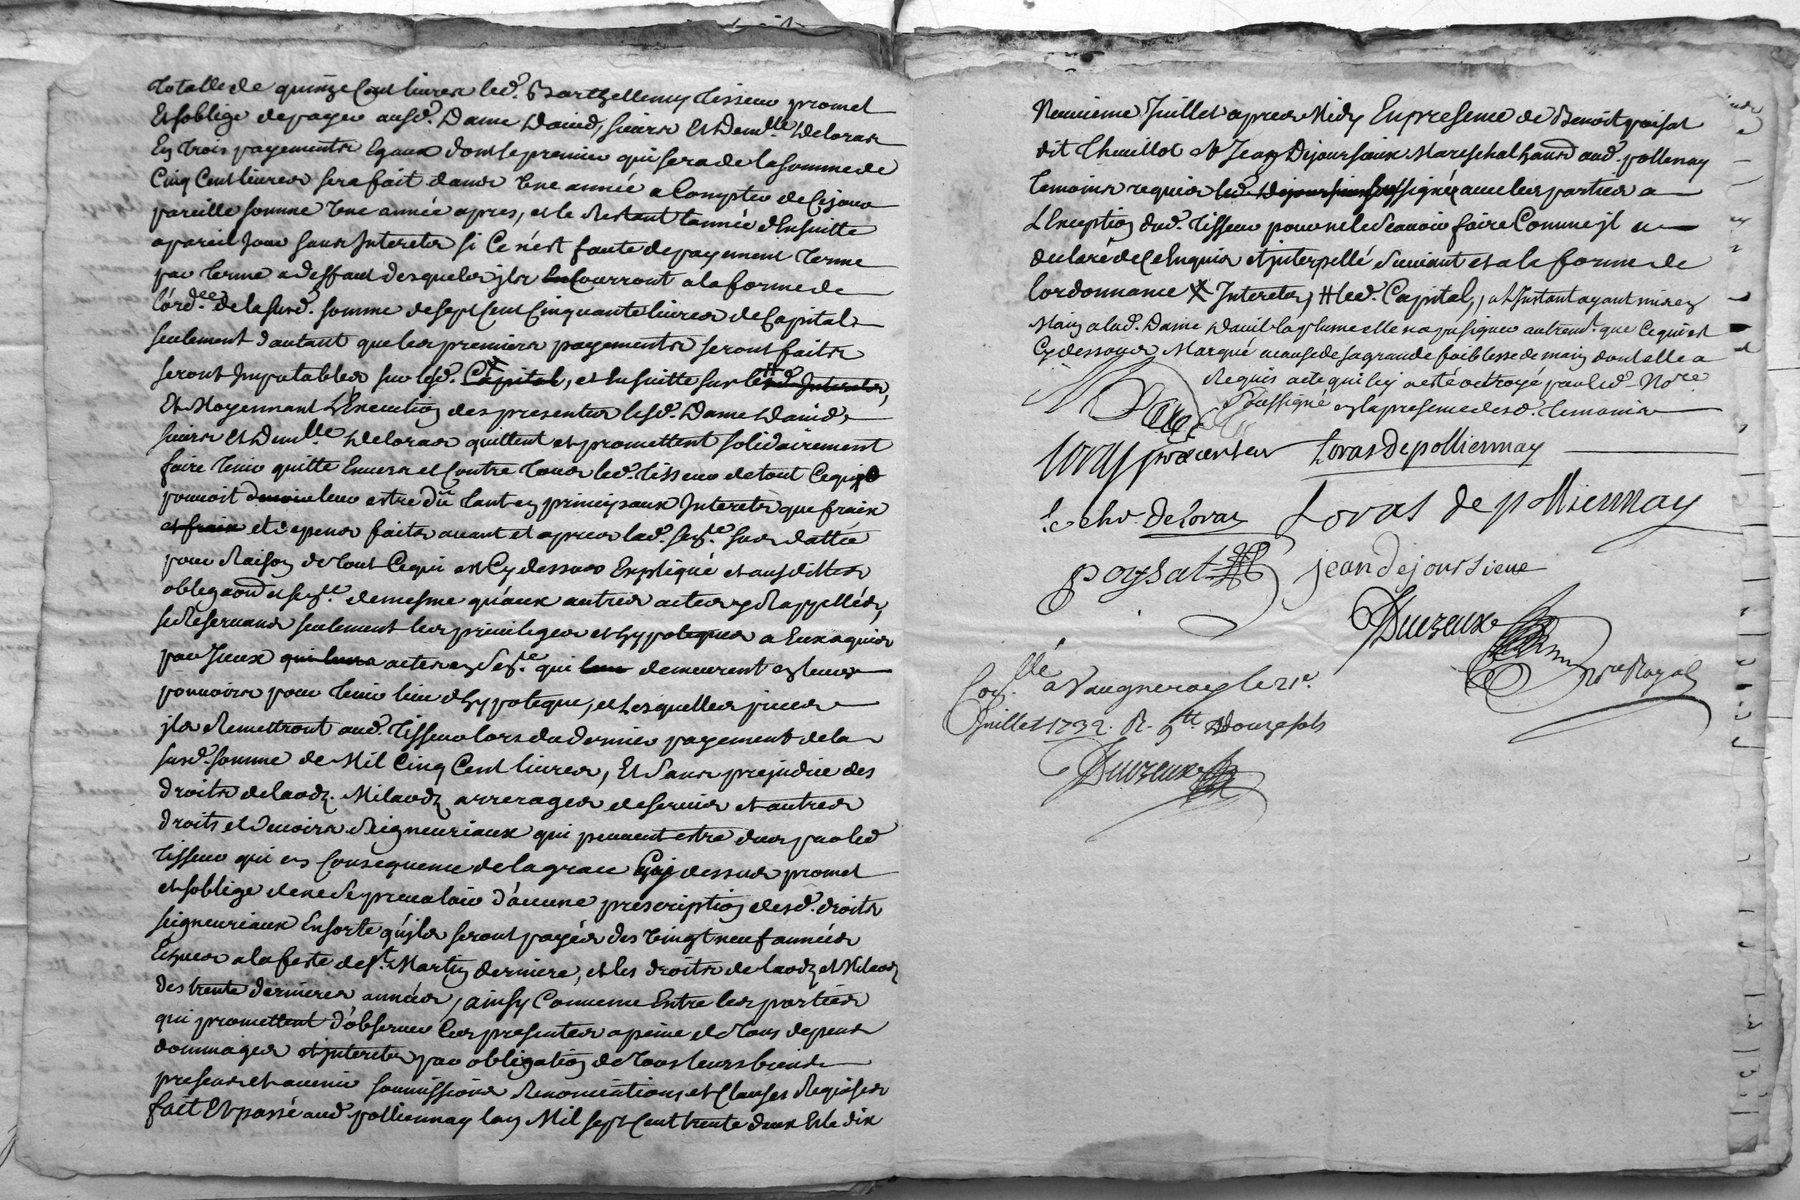 totalle de quinze Cent livres led. Barthellemy tisseur promet
Et soblige de payer ausd. Dame David, sieurs et Demlle Deloras
En trois payements Egaux dont le premier qui sera de la somme de
Cinq Cent livres sera fait dans Une année a Compter de Cejour
pareille somme Une année apres, et le Restant l'année d'Ensuitte
apareil jour sans Interets si Ce n'est faute de payement terme
par terme a deffaut desquels ils Courront a la forme de
l'ordce de la susd. somme de sept Cent Cinquante livres de Capital
seulement d'autant que les premiers payements seront faits
seront Imputables sur lesd. Capital, et Ensuitte sur lesd. Interets,
Et Moyennant L'Execution des presentes lesd. Dame David
sieurs et Demlle Deloras quittent et promettent solidairement
faire tenir quitte Envers et Contre tous led. tisseur de tout Cequi
pouvoit leur estre dû tant en principaux Interets que fraix
et fraix et depens faits avant et apres lad. sence sus dattée
pour Raison de tout Cequi est Cy dessus Expliqué et ausdittes
obligaons et sence de mesme qu'aux autres actes y Rappellés,
se Reservans seulement les privileges et hypoteques a Eux aquis
par Iceux qui leurs actes et sence qui leur demeurent en leurs
pouvoirs pour tenir lieu d'hypoteque, et lesquelles pieces
ils Remettront aud. tisseur lors du dernier payement de la
susd. somme de Mil Cinq Cent livres, Et sans prejudice des
droits de laods Milaods arrerages de servis et autres
droits et devoirs seigneuriaux qui peuvent estre dus par led
tisseur qui en Consequence de la grace Cy dessus promet
et soblige de ne se prevaloir d'aucune prescription desd. droits
seigneuriaux En sorte qu'ils seront payés des vingt neuf années
Echues a la feste de st Martin derniere, et les droits de laods et Milaods
des trente dernieres années, ainsy Convenu Entre les parties
qui promettent d'observer les presentes a peine de tous depens
dommages et interets par obligation de tous leurs biens
presents et avenir soumissions Renonciations et Clauses Requises
fait Et passé aud. pollienay lan Mil sept Cent trente deux Et le dix
Neuvieme Juillet apres Midy En presence de Benoit poisat
dit thuillot et Jean Dejoursieux Mareschal hand aud. pollenay
temoins requis led. Dejoursieux soussignés avec les parties a
L'Exception dud. tisseur pour ne le scavoir faire Comme il a
declaré de Ce Enquis et interpellé suivant et a la forme de
l'ordonnance X Interets, # led. Capital, , a l'Instant ayant mis en
Main a lad. Dame David la plume elle na pu signer autremt. que Ce qui est
Cy dessous Marqué a cause de sa grande foiblesse de main dont elle a
Requis acte qui luy a esté octroyé par led. Nore
soussigné en la presence desd. temoins
loras de polliennay
le chr. De Loras Loras de polliennay
poysat jean dejoursieue
Duezeux
nore Royal
Conllé a Vaugneray le 21e.
Juillet 1732. R. 9tt Douze sols
Duezeux